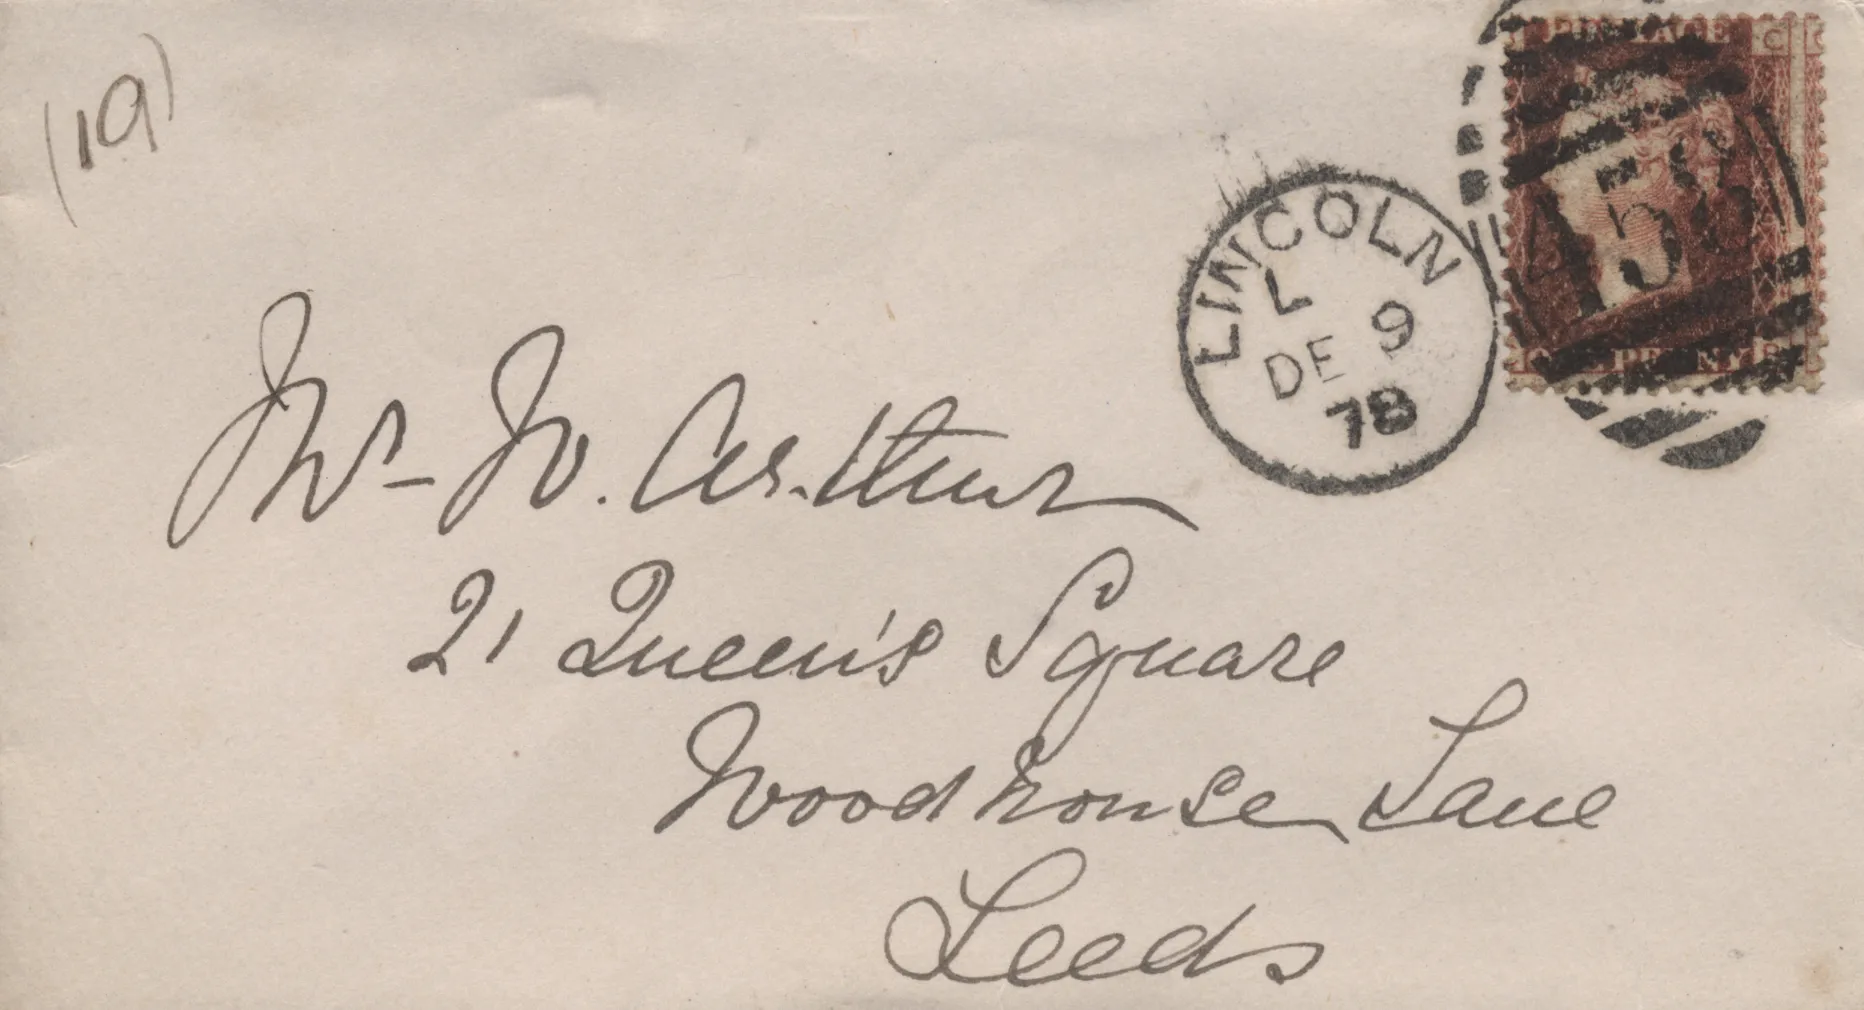 (19)
POSTAGE
C
LINCOLN
L 9
DE
78
ONE PENNY
Mr - W. Arthur
21 Queen's Square
Woodhouse Lane
Leeds